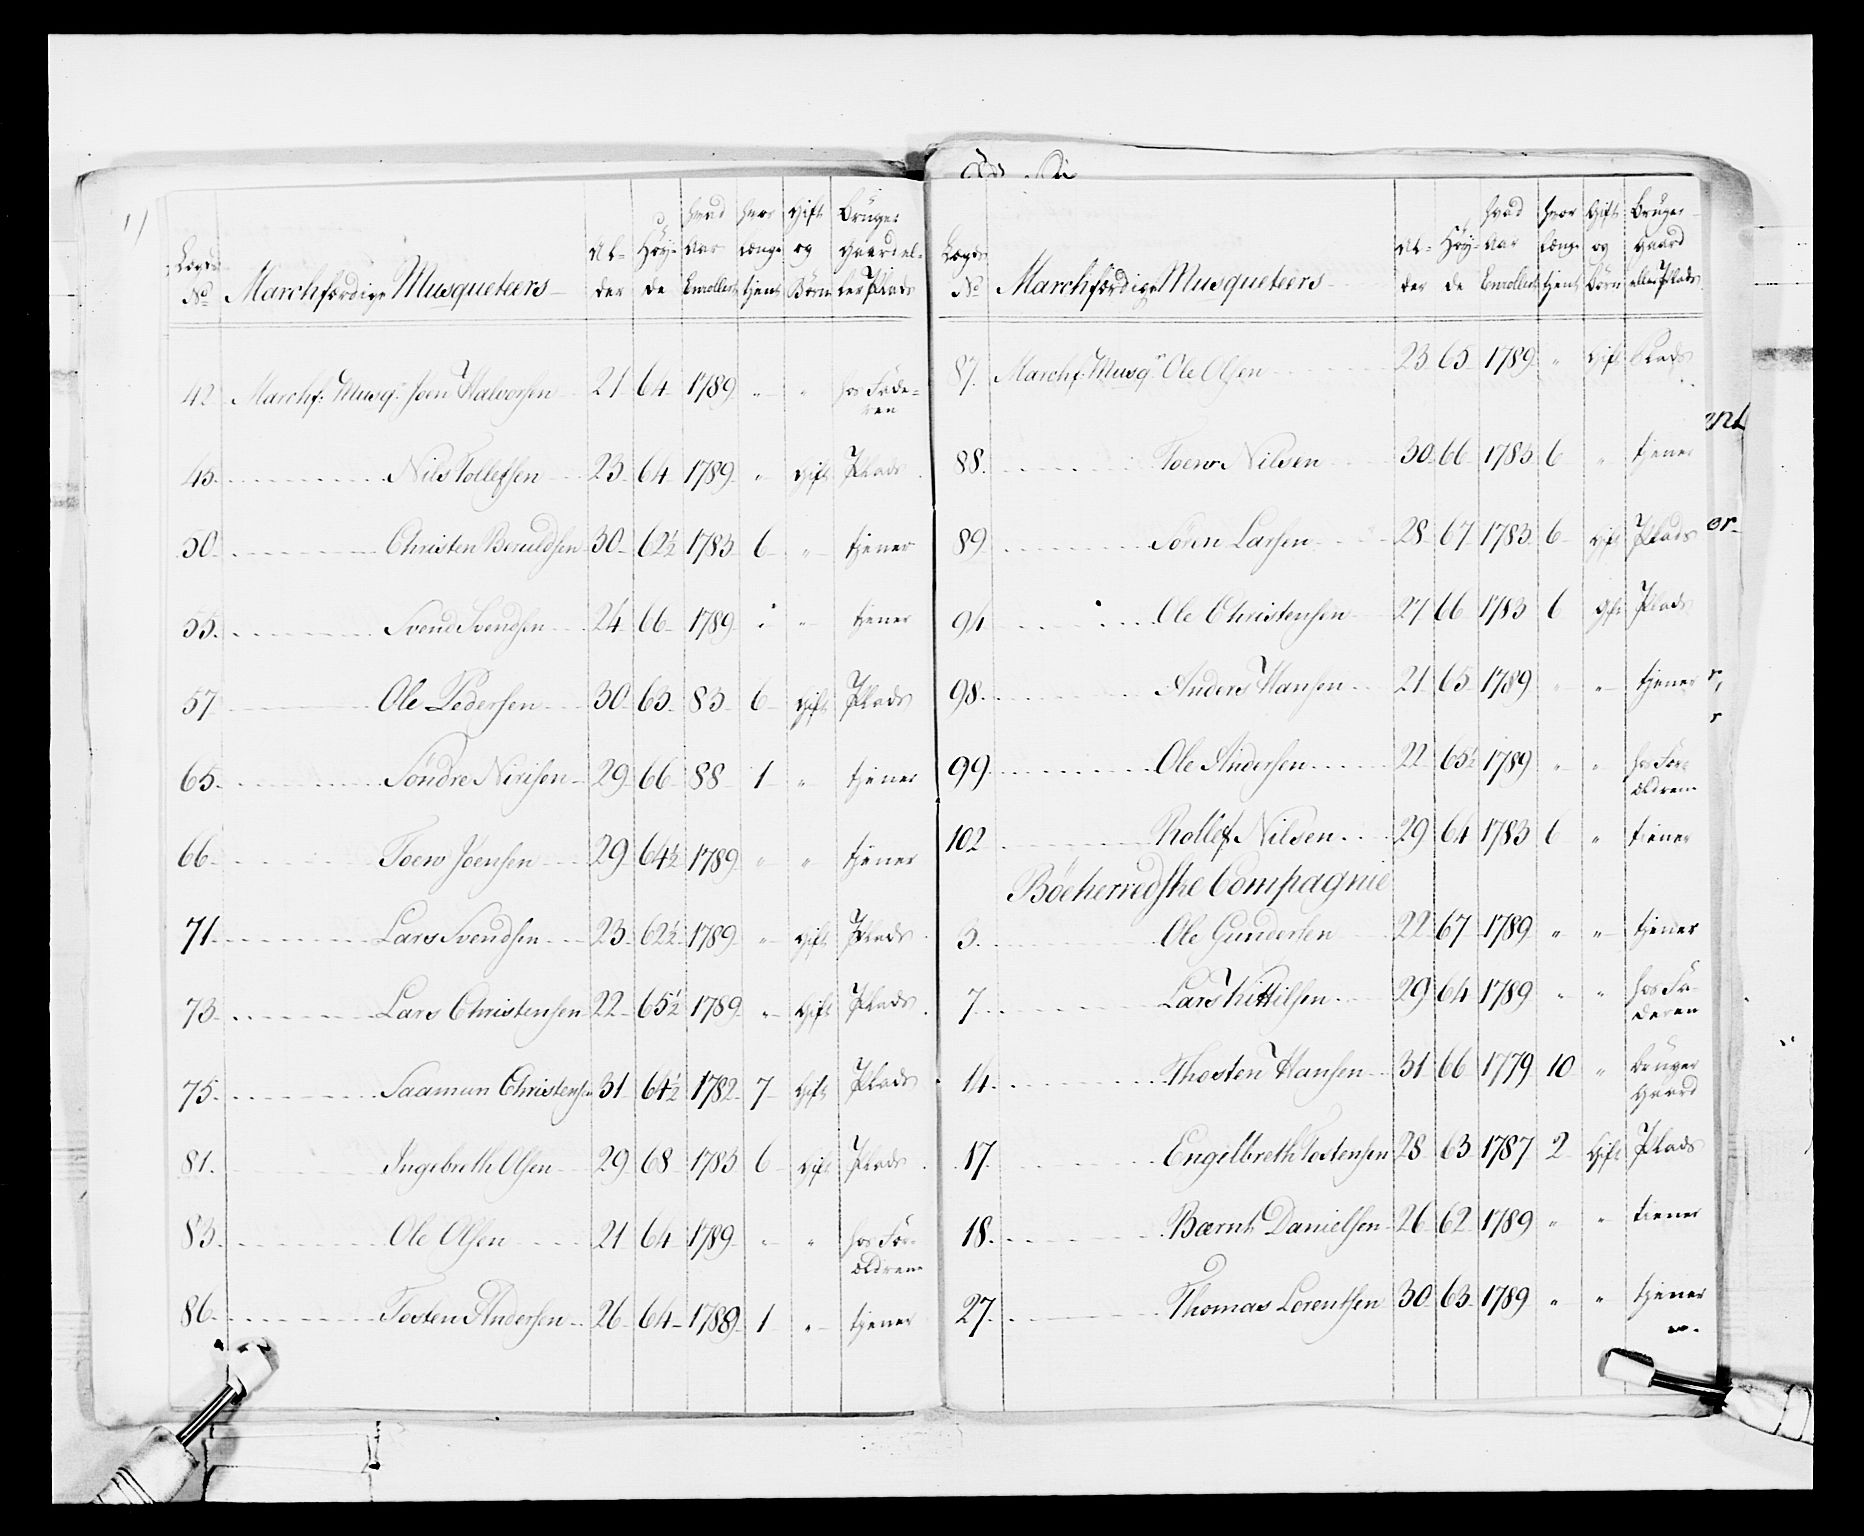 Lægds No Marchfærdige Musqueteers Al- der Høy- de hvad Aar Enrollert hvor længe tjent Gift og Børn Bruger Gaard el- ler Plads
42 Marchf: Musq: Joen Halvorsen 21 64 1789 " " hos Fade-
ren
45. Nils Tollefsen 23 64 1789 " Gift Plads
50. Christen Beruldsen 30 62½ 1783 6 " tjener
55. Svend Svendsen 24 66 1789 " " tjener
57 Ole Pedersen 30 63 83 6 Gift Plads
65. Søndre Nirisen 29 66 88 1 " tjener
66 Toew Joensen 29 64½ 1789 " " tjener
71. Lars Svendsen 23 62½ 1789 " Gift Plads
73. Lars Christensen 22 65½ 1789 " Gift Plads
75. Saamun Christensen 31 64½ 1782 7 Gift Plads
81. Ingebreth Olsen 29 68 1783 6 Gift Plads
83. Ole Olsen 21 64 1789 " " hos For-
ældrene
86. Tosten Andersen 26 64 1788 1 " tjener
Lægds No Marchfærdige Musqueteers Al- der Høy- de hvad Aar Enrollert hvor længe tjent Gift og Børn Bruger Gaard eller Plads
87. Marchf: Musq: Ole Olsen 23 65 1789 " Gift Plads
88. Toew Nilsen 30 66 1783 6 " tjener
89 Søren Larsen 28 67 1783 6 Gift Plads
94 Ole Christensen 27 66 1783 6 Gift Plads
98. Anders Hansen 21 65 1789 " " tjener
99. Ole Andersen 22 65½ 1789 " " hos For-
ældrene
102 Rollef Nilsen 29 64 1783 6 " tiener
Böeherredske Compagnie
3. Ole Gundersen 22 67 1789 " " tjener
7. Lars Kittilsen 29 64 1789 " " hos Fa-
deren
14. Thosten Hansen 31 66 1779 10 " bruger
Gaard
17. Engelbreth Tostensen 28 63 1787 2 Gift Plads
18. Bærnt Danielsen 26 62 1789 " " tiener
27. Thomas Lorentsen 30 63 1789 " " tjener